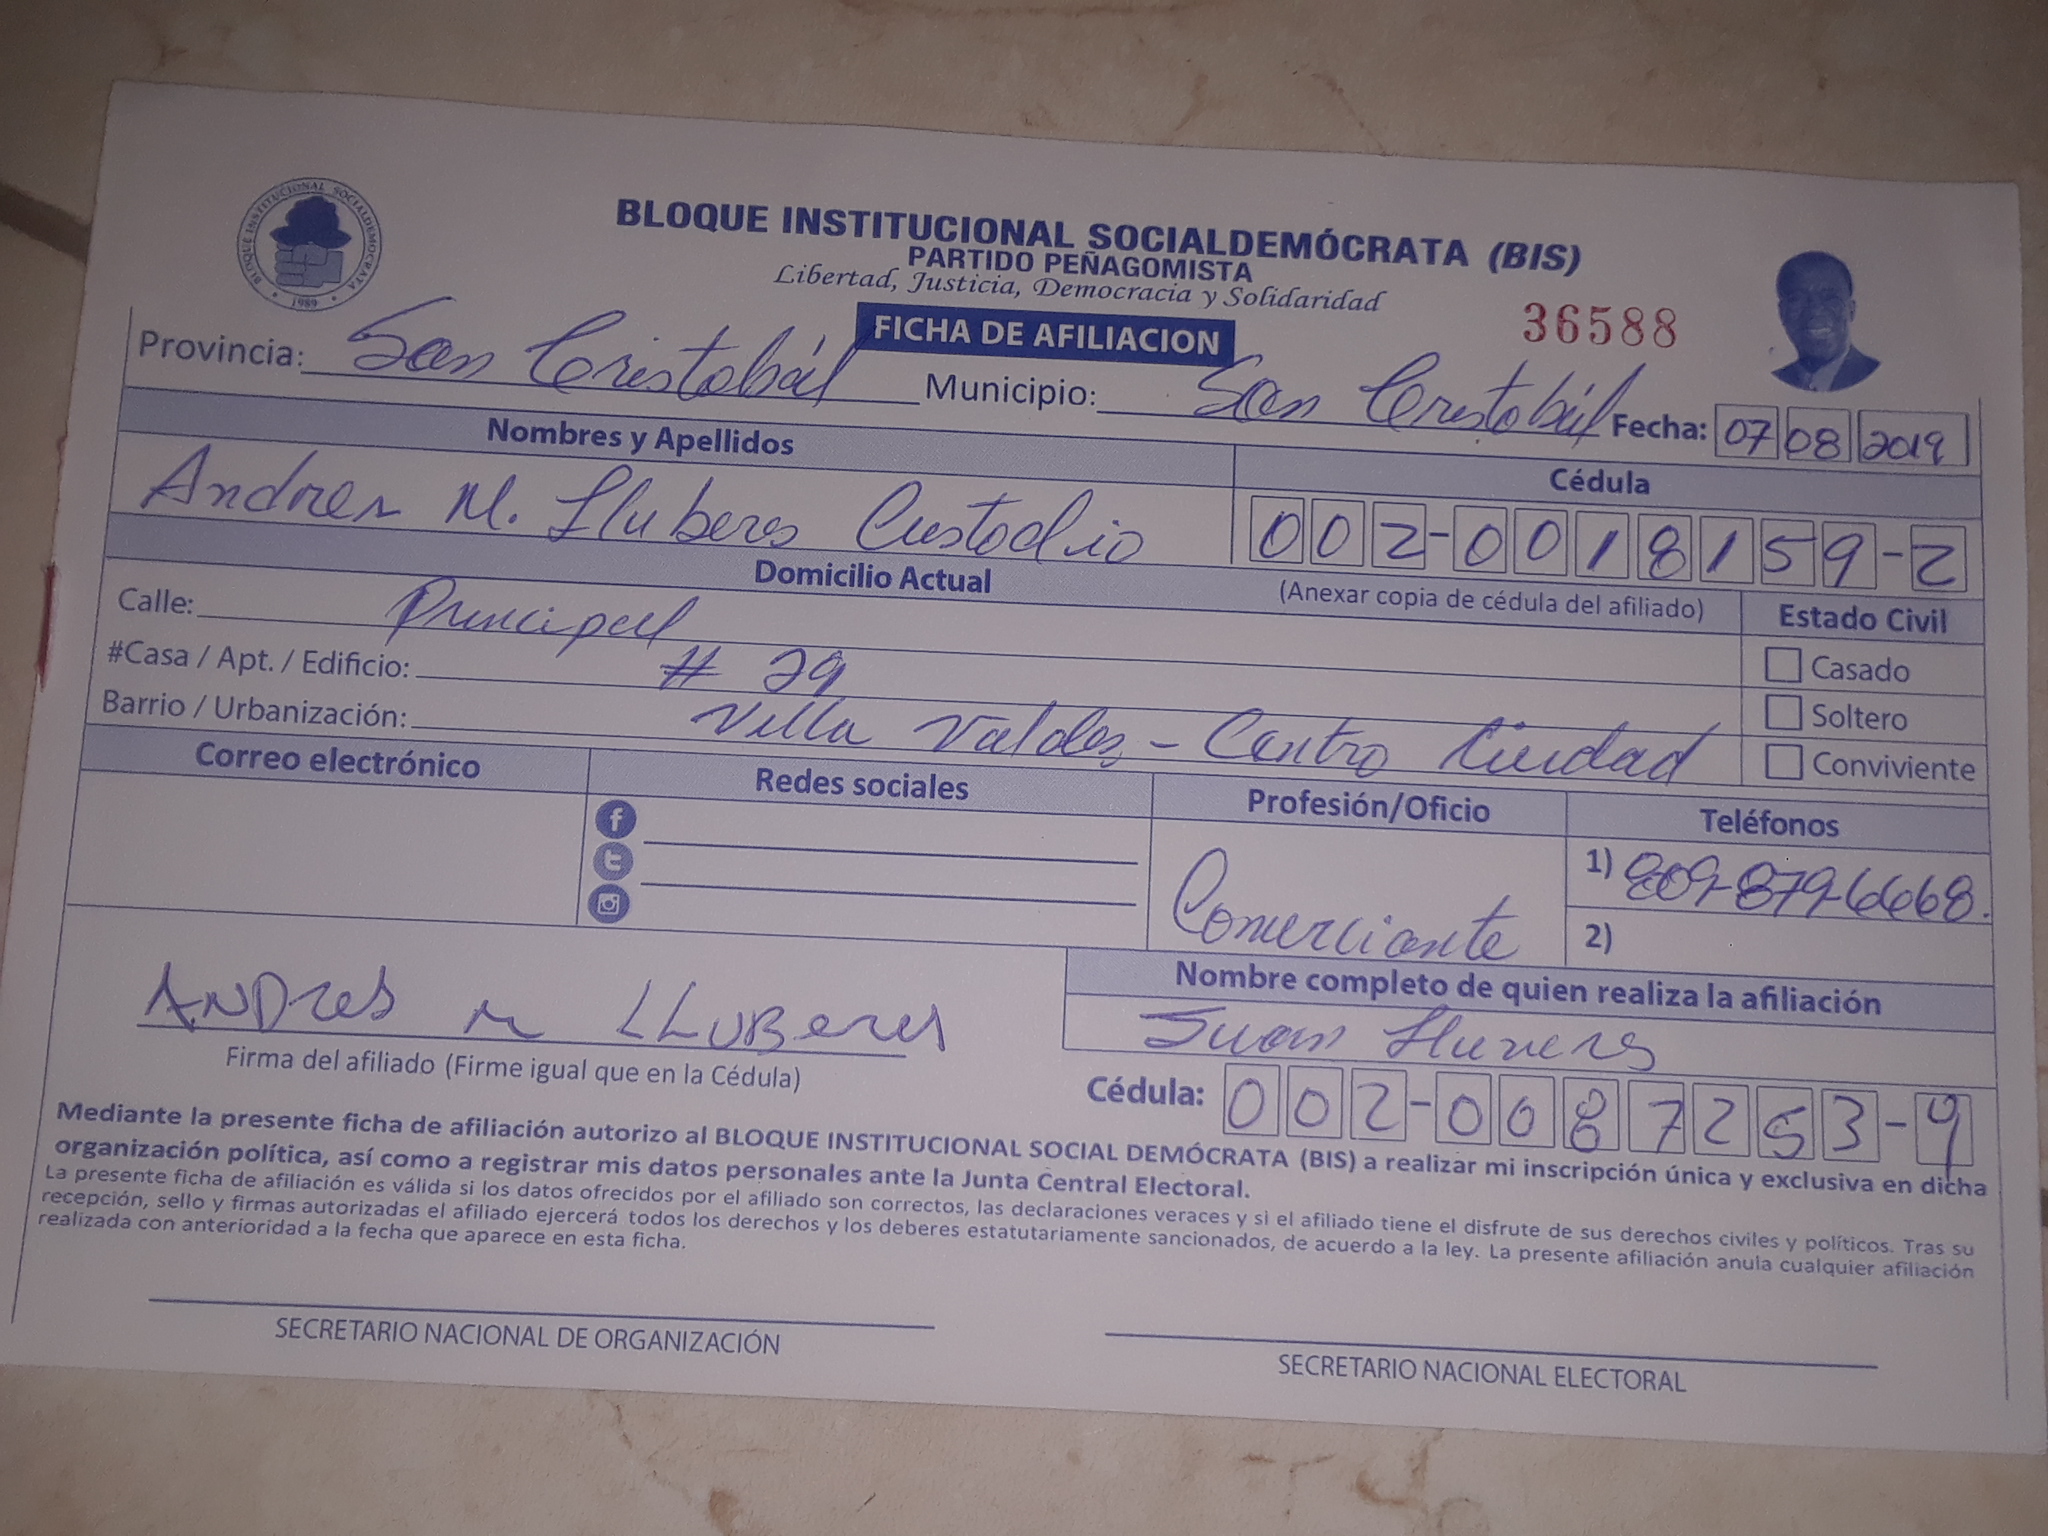 BLOQUE INSTITUCIONAL SOCIALDEMOCRATA
1989
BLOQUE INSTITUCIONAL SOCIALDEMÓCRATA (BIS)
PARTIDO PEÑAGOMISTA
Libertad, Justicia, Democracia y Solidaridad
FICHA DE AFILIACION
36588
Provincia: San Cristobál Municipio: San Cristobál Fecha: 07 08 2019
Nombres y Apellidos Cédula
Andres M. Lluberes Custodio 002-0018159-2
Domicilio Actual (Anexar copia de cédula del afiliado) Estado Civil
Calle: Principal
Casado
#Casa / Apt. / Edificio: # 29
Soltero
Barrio / Urbanización: Villa Valdez - Centro Ciudad
Conviviente
Correo electrónico Redes sociales Profesión/Oficio Teléfonos
Comerciante
1) 809-879-6668.
2)
Nombre completo de quien realiza la afiliación
ANDres m LLUBeres
Juan Lluveres
Firma del afiliado (Firme igual que en la Cédula)
Cédula: 002-0087253-9
Mediante la presente ficha de afiliación autorizo al BLOQUE INSTITUCIONAL SOCIAL DEMÓCRATA (BIS) a realizar mi inscripción única y exclusiva en dicha
organización política, así como a registrar mis datos personales ante la Junta Central Electoral.
La presente ficha de afiliación es válida si los datos ofrecidos por el afiliado son correctos, las declaraciones veraces y si el afiliado tiene el disfrute de sus derechos civiles y políticos. Tras su
recepción, sello y firmas autorizadas el afiliado ejercerá todos los derechos y los deberes estatutariamente sancionados, de acuerdo a la ley. La presente afiliación anula cualquier afiliación
realizada con anterioridad a la fecha que aparece en esta ficha.
SECRETARIO NACIONAL DE ORGANIZACIÓN
SECRETARIO NACIONAL ELECTORAL